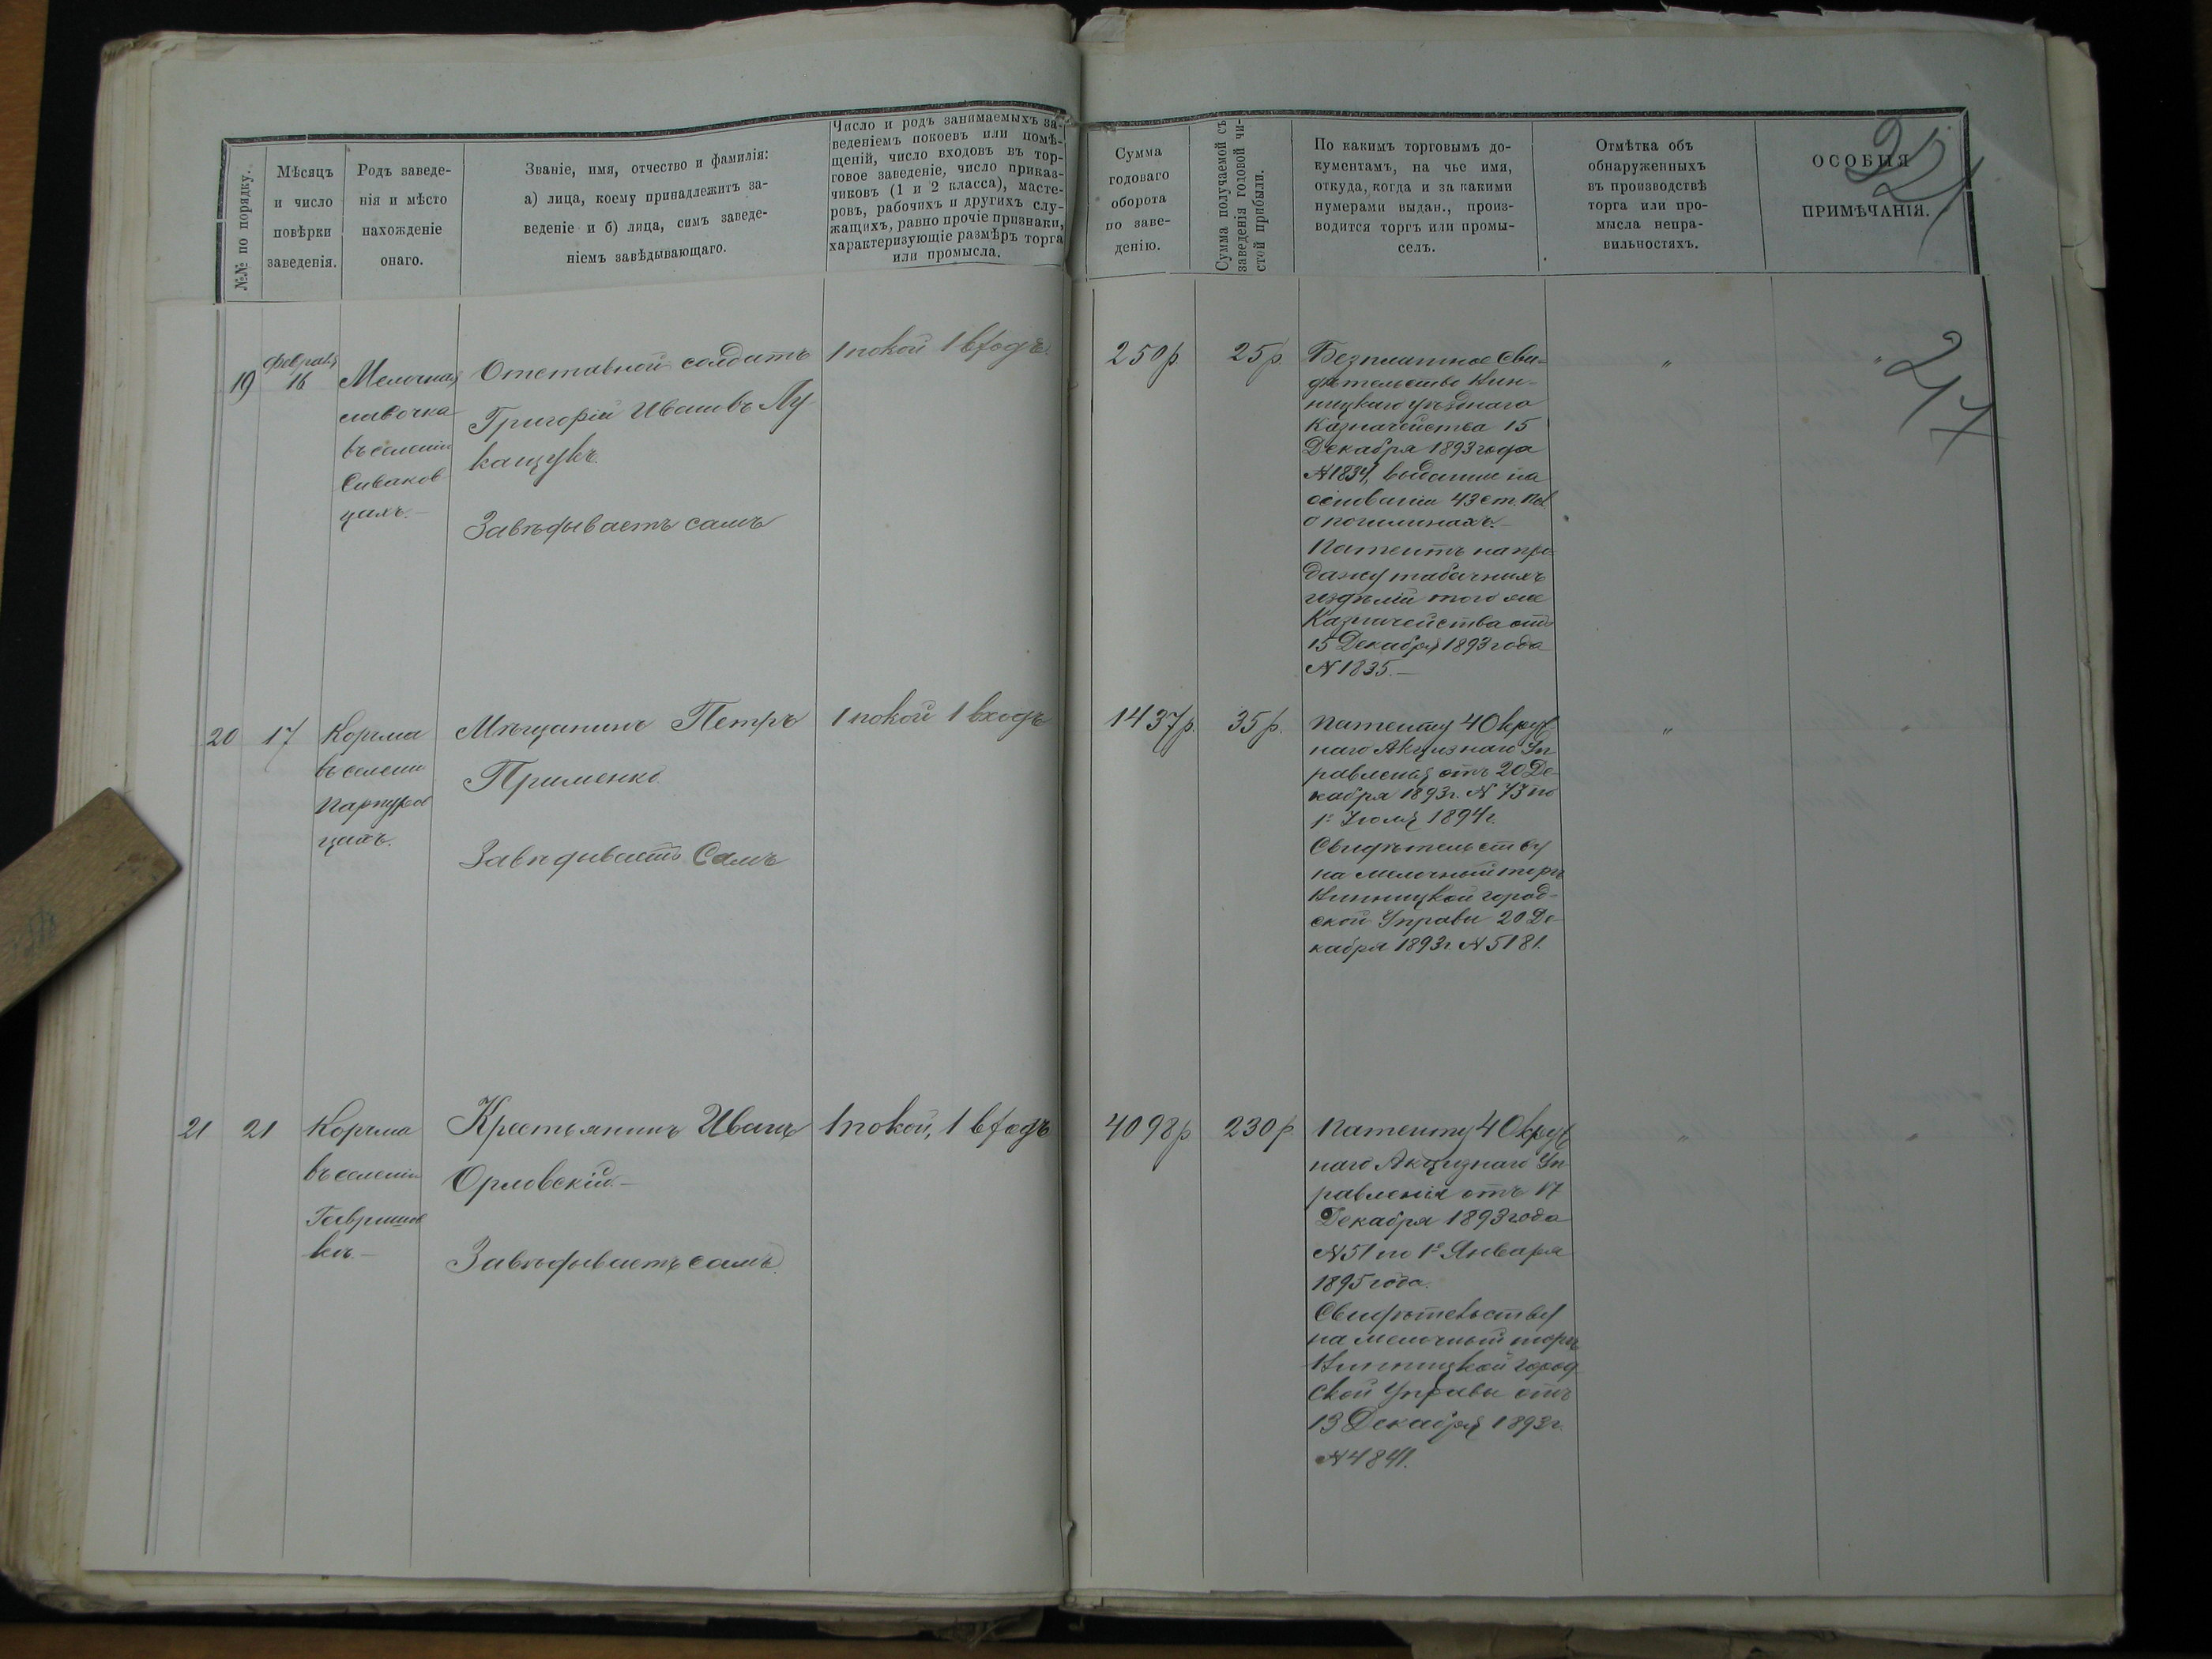 №№ по порядку.
Мѣсяцъ
и число
повѣрки
заведенія.
Родъ заведе-
нія и мѣсто
нахожденіе
онаго.
Званіе, имя, отчество и фамилія:
а) лица, коему принадлежитъ за-
веденіе и б) лица, симъ заведе-
ніемъ завѣдывающаго.
Число и родъ занимаемыхъ за-
веденіемъ покоевъ или помѣ-
щеній, число входовъ въ тор-
говое заведеніе, число приказ-
чиковъ (1 и 2 класса), масте-
ровъ, рабочихъ и другихъ слу-
жащихъ, равно прочіе признаки,
характеризующіе размѣръ торга
или промысла.
Сумма
годоваго
оборота
по заве-
денію.
Сумма получаемой съ
заведенія годовой чи-
стой прибыли.
По какимъ торговымъ до-
кументамъ, на чье имя,
откуда, когда и за какими
нумерами выдан., произ-
водится торгъ или промы-
селъ.
Отмѣтка объ
обнаруженныхъ
въ производствѣ
торга или про-
мысла непра-
вильностяхъ.
ОСОБЫЯ
ПРИМѢЧАНІЯ.
19
Февраля
16
Мелочная
лавочка
въ селеніи
Сиваков
цахъ.—
Отставной солдатъ
Григорій Ивановъ Лу
кащукъ.
Завѣдываетъ самъ
1 покой 1 входъ.
250 р.
25 р.
Безплатное Сви-
дѣтельство Вин-
ницкаго уѣзднаго
Казначейства 15
Декабря 1893 года
№ 1834, выданное на
основаніи 43 ст. Пол.
о пошлинахъ.—
Патентъ на про-
дажу табачныхъ
издѣлій того же
Казначейства отъ
15 Декабря 1893 года
№ 1835.—
„
„
27
20
17
Корчма
въ селеніи
Парпуров
цахъ.
Мѣщанинъ Петръ
Завѣдываетъ Самъ
1 покой 1 входъ
1437 р.
35 р.
Патенту 4 Округ
наго Акцизнаго Уп
равленія отъ 20 Де-
кабря 1893 г. № 73 по
1е Іюля 1894 г.
Свидѣтельству
на мелочный торгъ
Винницкой город-
ской Управы 20 Де-
кабря 1893 г. № 5181.
„
„
21
21
Корчма
въ селеніи
Гавришов
кѣ.—
Крестьянинъ Иванъ
Орловскій.—
Завѣдываетъ самъ.
1 покой, 1 входъ
4098 р
230 р.
Патенту 4 Округ
наго Акцизнаго Уп
равленія отъ 17
Декабря 1893 года
№ 51 по 1е Января
1895 года.
Свидѣтельству
на мелочный торгъ
Винницкой город
ской Управы отъ
13 Декабря 1893 г.
№ 4841.
„
„